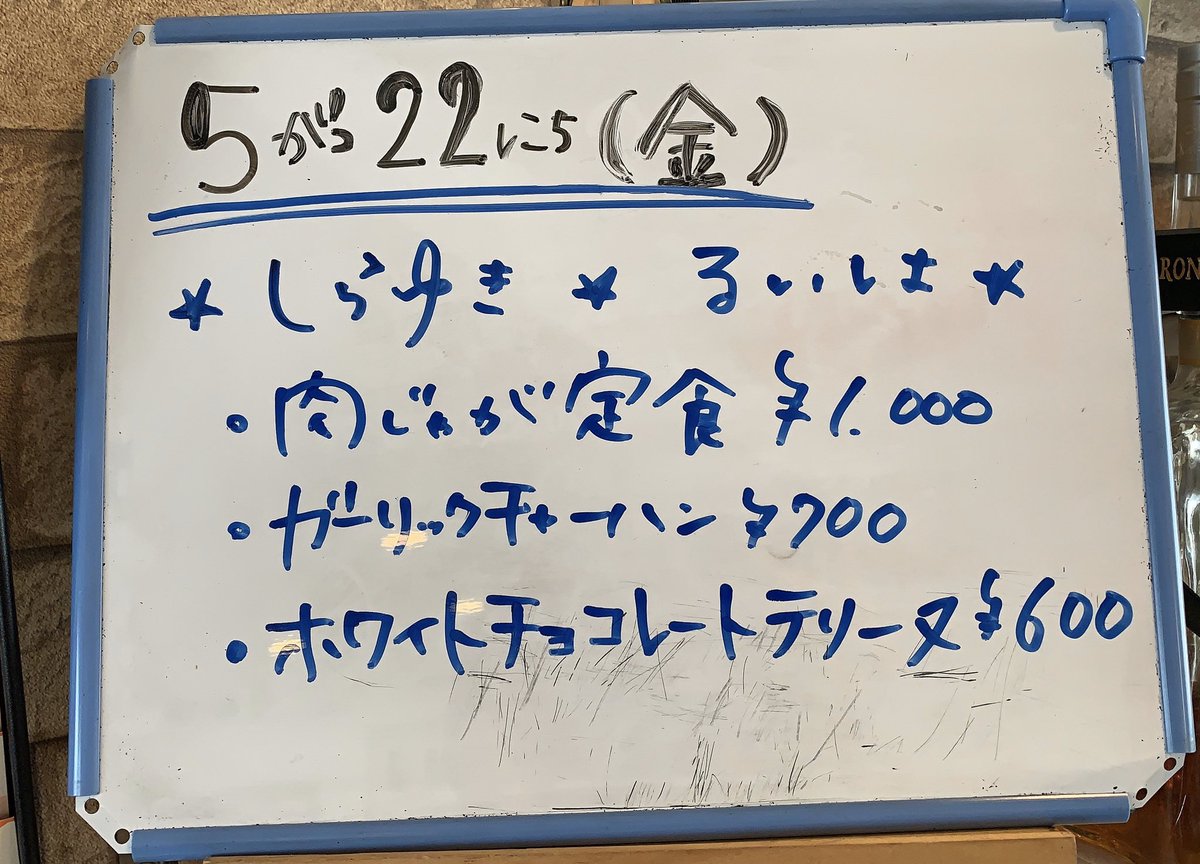 5がつ22にち(金)
★しらゆき★るいしは★
・肉じゃが定食¥1.000
・ガーリックチャーハン¥700
・ホワイトチョコレートテリーヌ¥600
RON